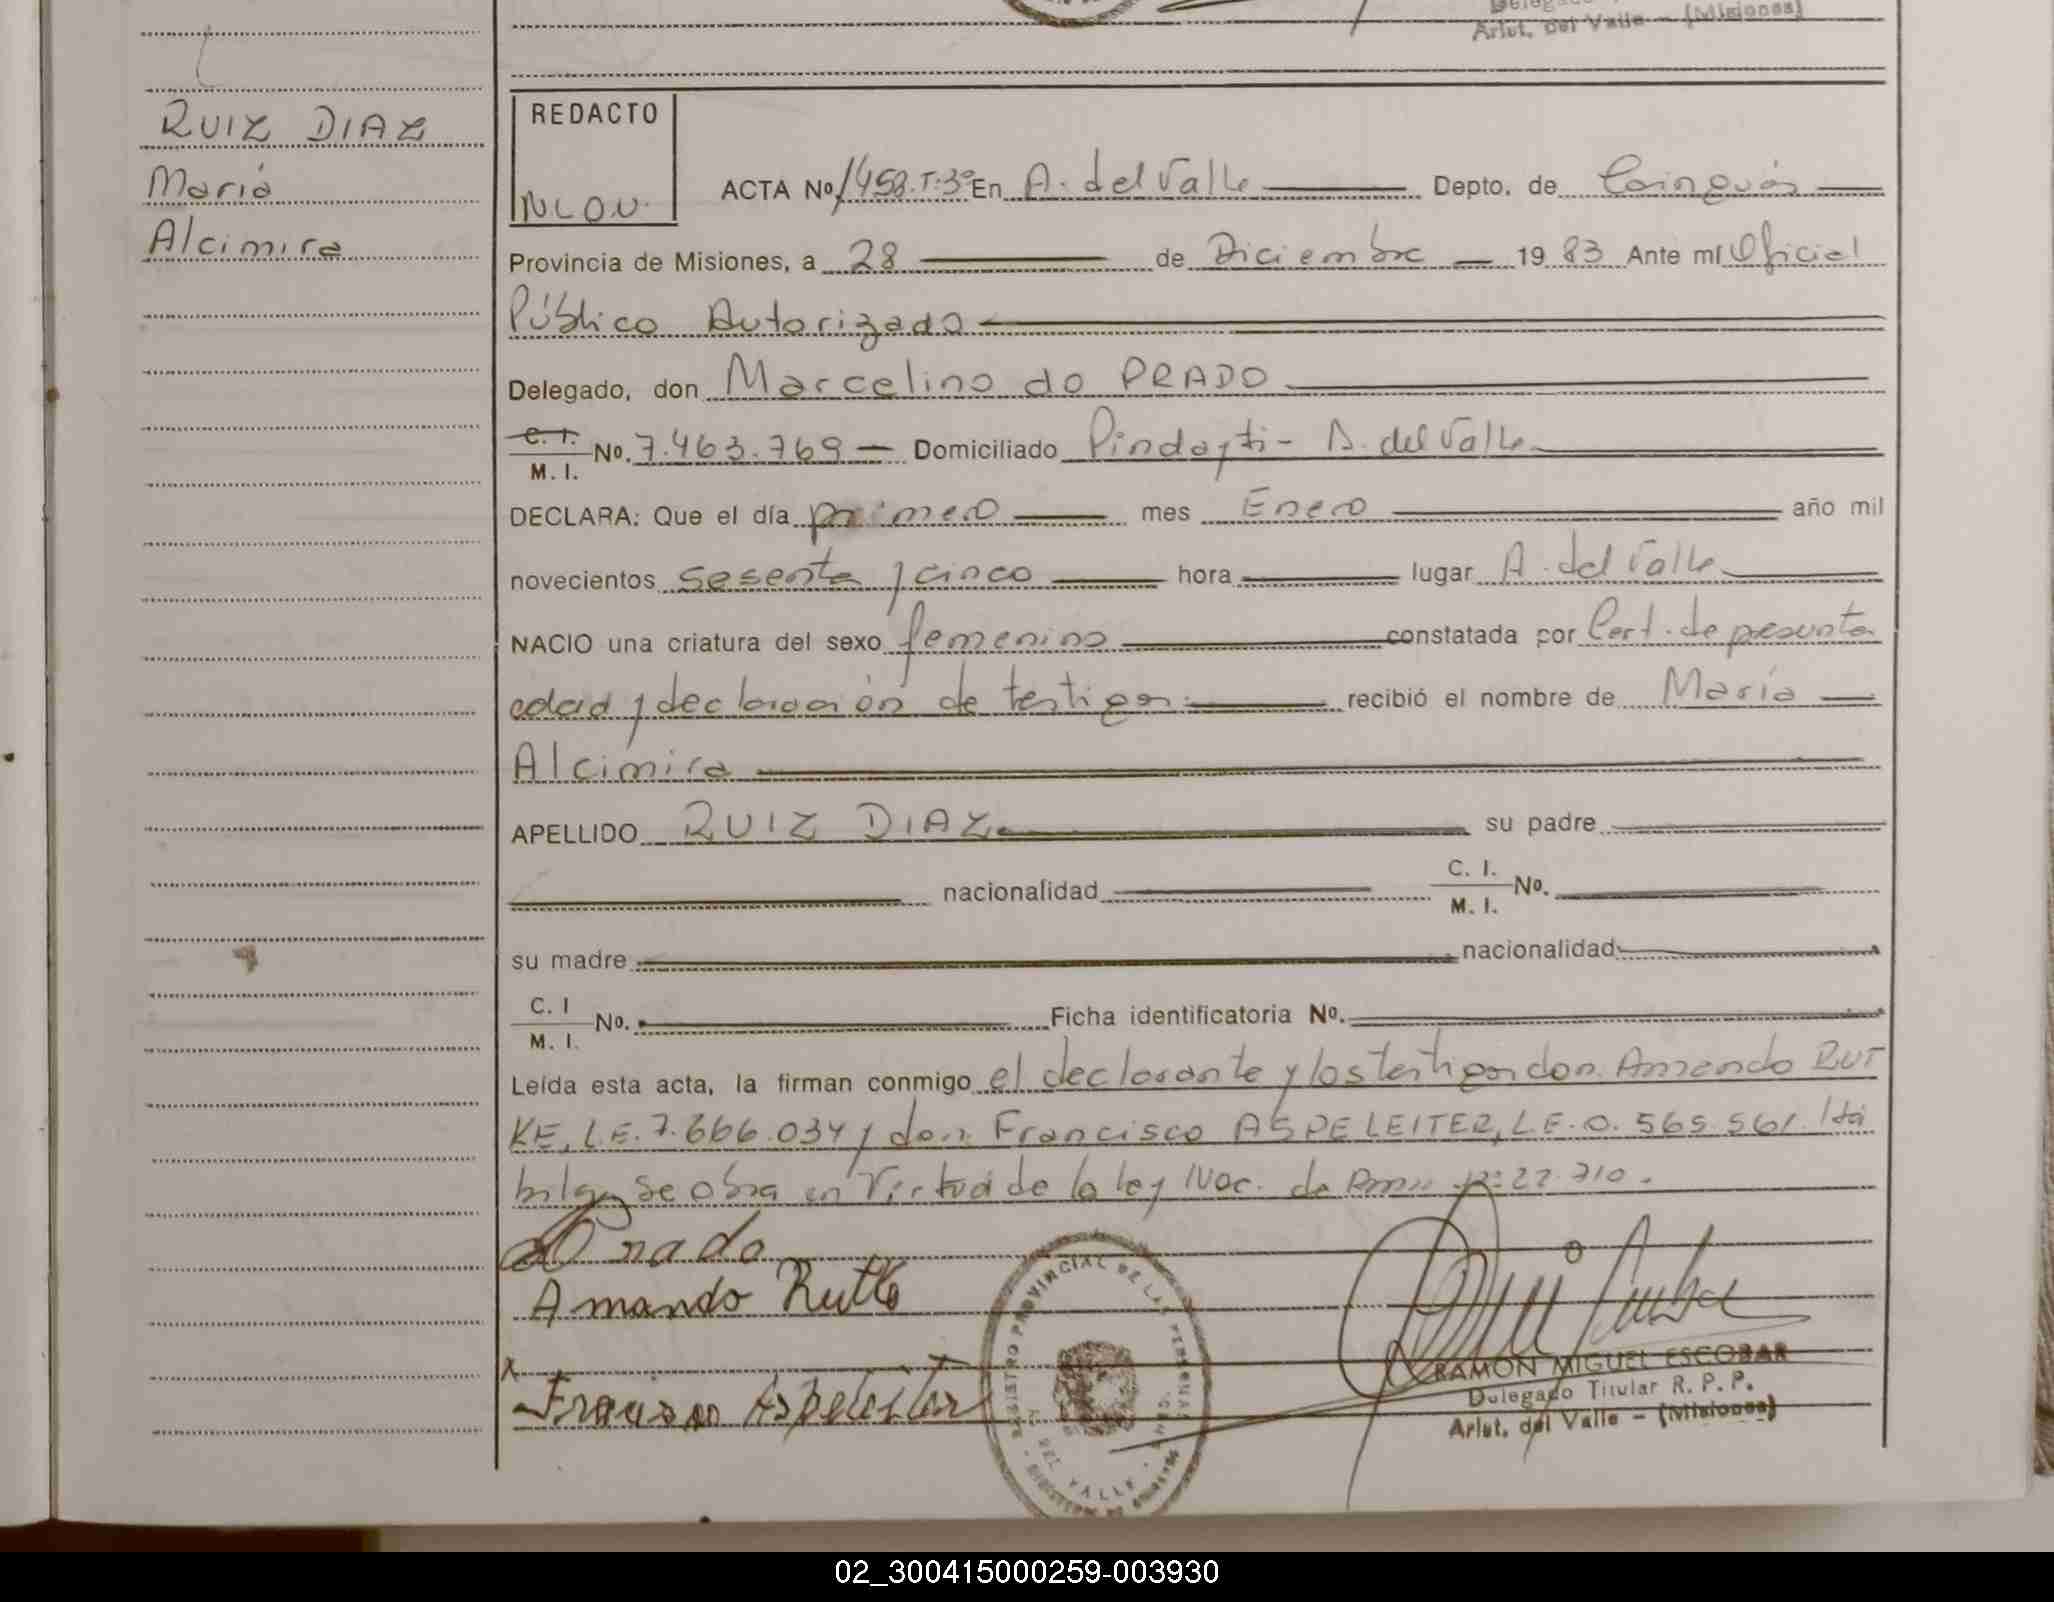 Delegado
Arist. del Valle - (Misiones)
RUIZ DIAZ
María
Alcimira
REDACTO
N.L.O.V.
ACTA No 1458.T:3º En A. del Valle Depto. de Cainguás
Provincia de Misiones, a 28 de Diciembre 1983 Ante mí Oficial
Público Autorizado
Delegado, don Marcelino do PRADO
C. I. M. I. No. 7.463.769 Domiciliado Pindayti - A. del Valle
DECLARA: Que el día primero mes Enero año mil
novecientos sesenta y cinco hora lugar A. del Valle
NACIO una criatura del sexo femenino constatada por Cert. de presunta
edad y declaración de testigos recibió el nombre de María
Alcimira
APELLIDO RUIZ DIAZ su padre
nacionalidad C. I. M. I. No.
su madre nacionalidad
C. I M. I. No. Ficha identificatoria No.
Leída esta acta, la firman conmigo el declarante y los testigos don Amando RUT
KE, L.E. 7.666.034 y don Francisco ASPELEITER, L.E. 0.565.561.
se obra en Virtud de la ley Nac. de Nº 22.710.
do Prado
Amando Rutke
Francisco Aspeleiter
REGISTRO PROVINCIAL DE LAS PERSONAS
DEL VALLE
RAMON MIGUEL ESCOBAR
Delegado Titular R. P. P.
Arist. del Valle - (Misiones)
02_300415000259-003930